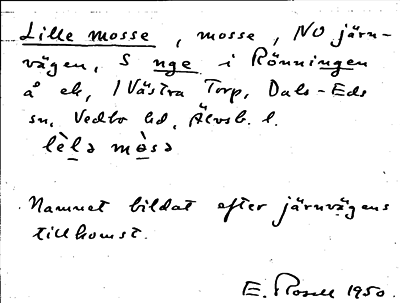 Lille mosse, mosse, NO järn-
vägen, S nge i Rönningen
å ek, 1 Västra Torp, Dals-Eds
sn, Vedbo hd, Älvsb. l.
lèlə mòsə
Namnet bildat efter järnvägens
tillkomst.
E. Rosell 1950